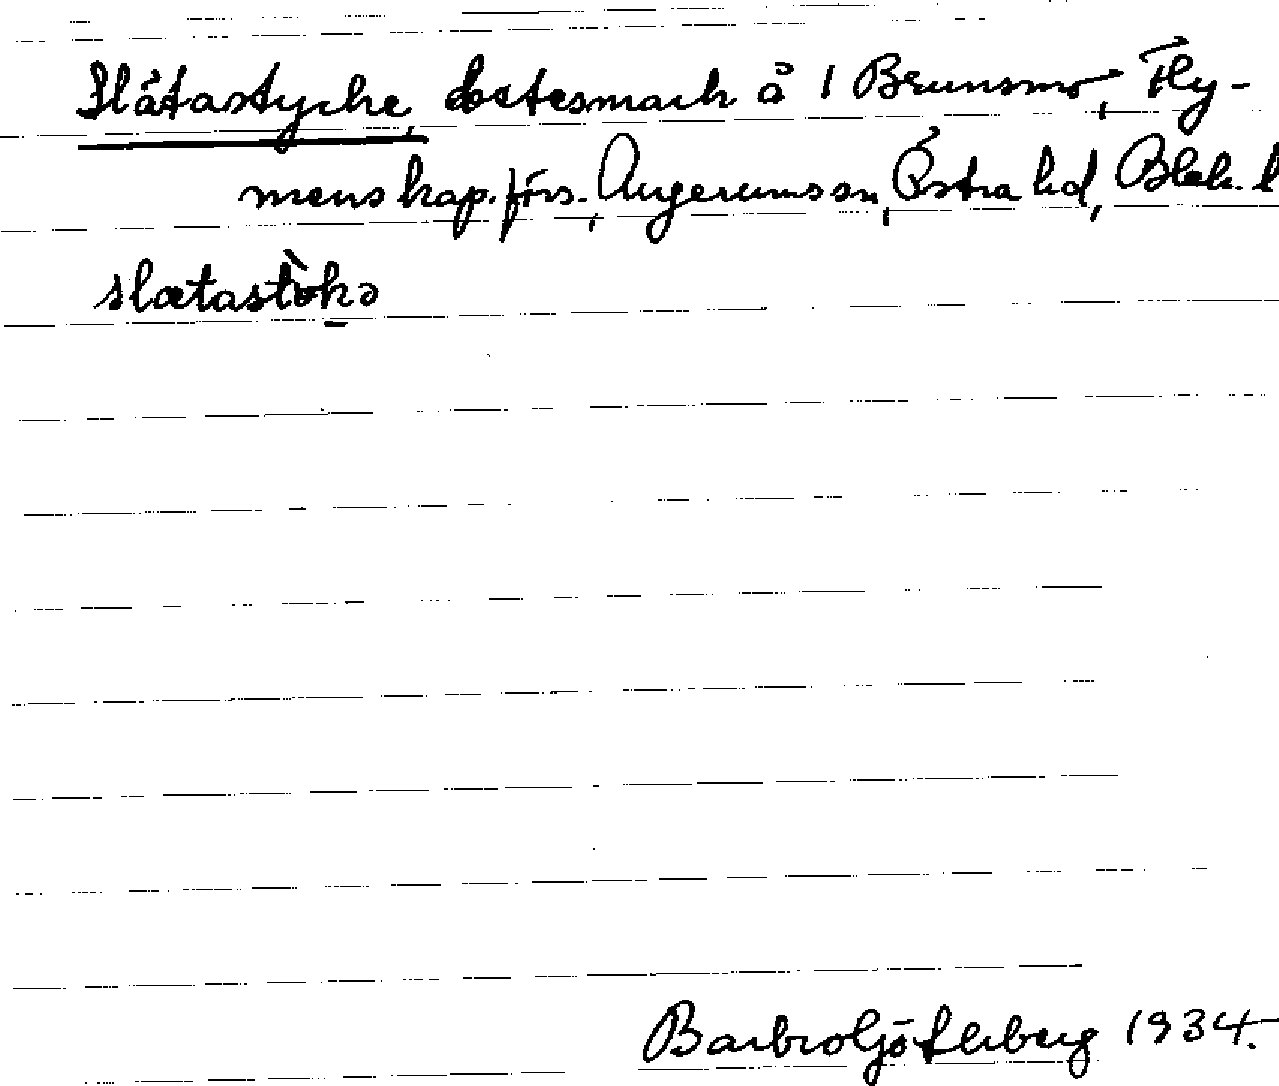 Slåtastycke, betesmark å 1 Brunsmo, Fly-
menskap. förs., Augerumssn, Östra hd, Blek. l
slætastøkə
Barbro 1934.